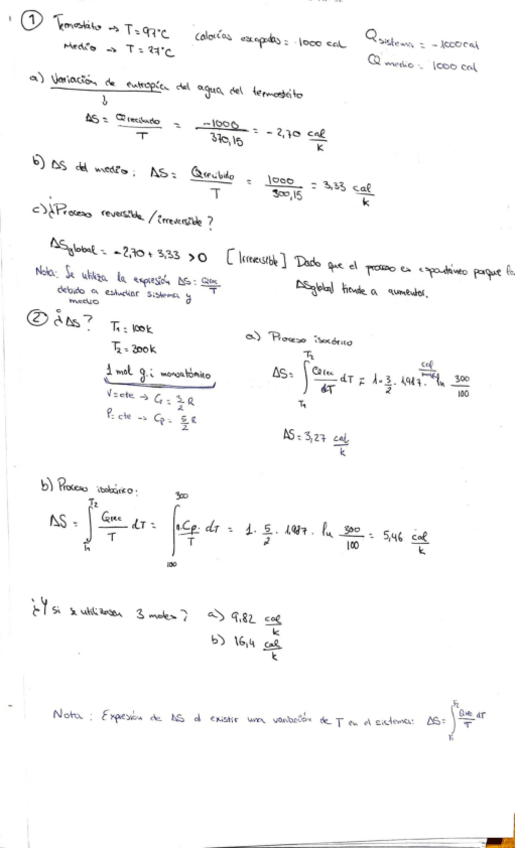 ① Termostato → T = 97°C   calorías escapadas = 1000 cal   Qsistema = -1000 cal
Medio → T = 27°C   Qmedio = 1000 cal
a) Variación de entropía del agua del termostato
ΔS = Qrecibido / T = -1000 / 370,15 = -2,70 cal/K
b) ΔS del medio: ΔS = Qrecibido / T = 1000 / 300,15 = 3,33 cal/K
c) ¿Proceso reversible/irreversible?
ΔSglobal = -2,70 + 3,33 > 0 [Irreversible] Dado que el proceso es espontáneo porque la
ΔSglobal tiende a aumentar.
Nota: Se utiliza la expresión ΔS = Qrec/T
debido a estudiar sistema y
medio
② ¿ΔS?   T₁ = 100K
T₂ = 300K
1 mol g.i monoatómico
V = cte → Cv = 3/2 R
P = cte → Cp = 5/2 R
a) Proceso isocórico
ΔS = ∫T₁T₂ Qrec/dT dT = 1 · 3/2 · 1,987 · ln 300/100
ΔS = 3,27 cal/K
b) Proceso isobárico:
ΔS = ∫T₁T₂ Qrec/T dT = ∫100300 n.Cp/T · dT = 1 · 5/2 · 1,987 · ln 300/100 = 5,46 cal/K
¿Y si se utilizasen 3 moles? a) 9,82 cal/K
b) 16,4 cal/K
Nota: Expresión de ΔS al existir una variación de T en el sistema: ΔS = ∫T₁T₂ Qrec/T dT